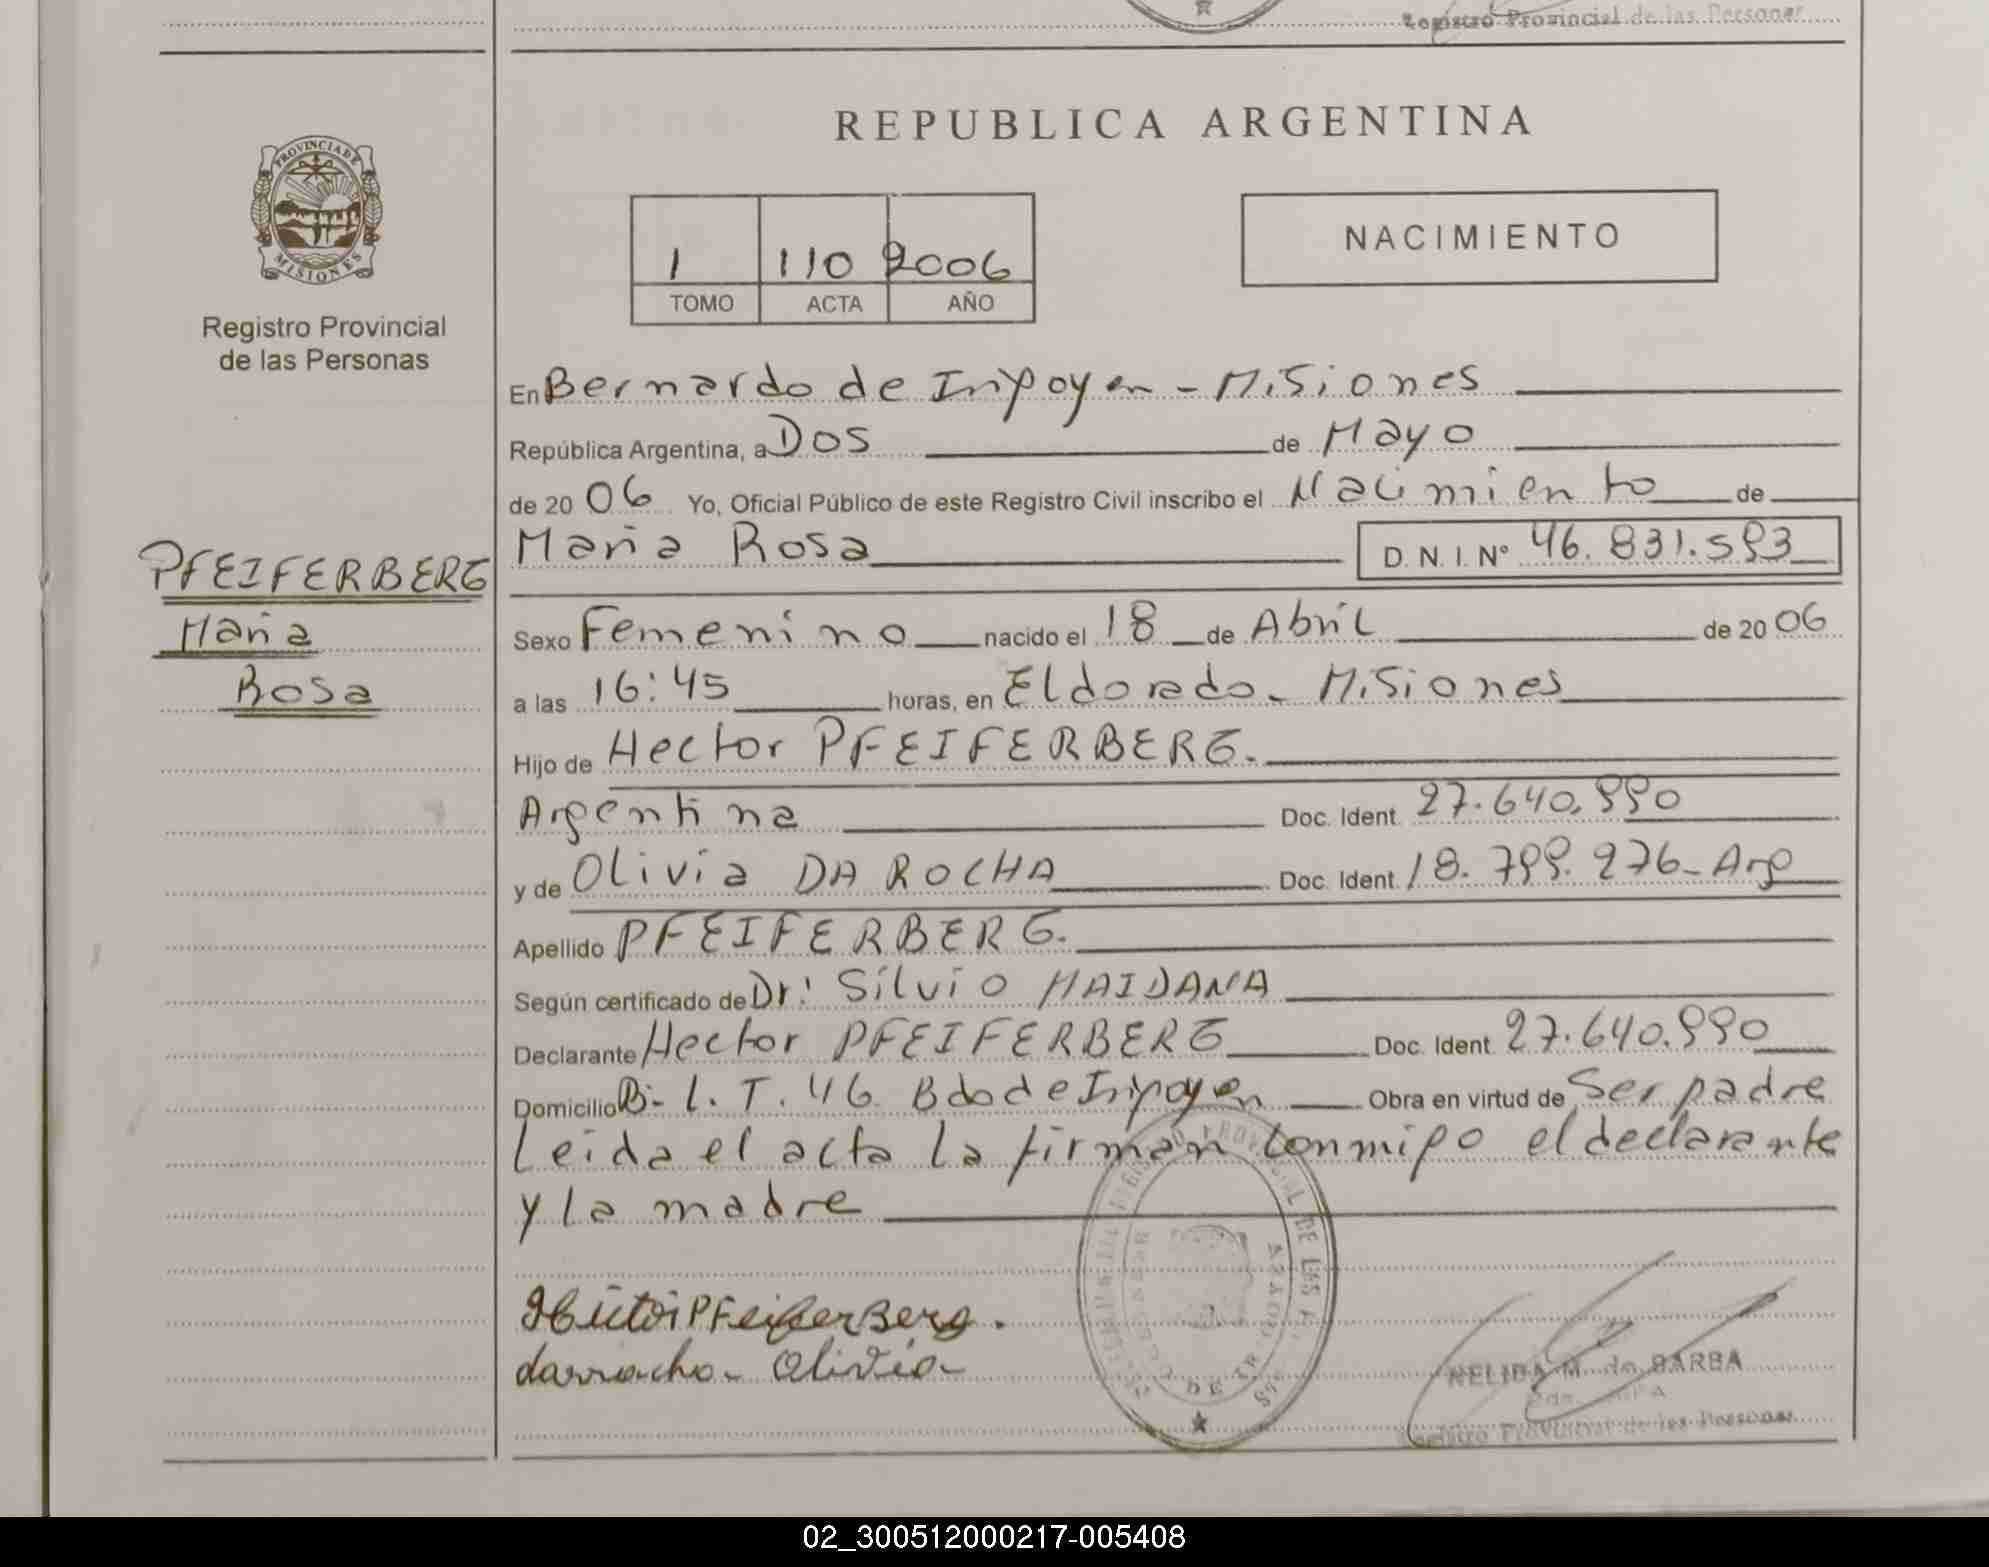 Registro Provincial de las Personas
PROVINCIA DE
MISIONES
Registro Provincial
de las Personas
PFEIFERBERG
Maria
Rosa
REPUBLICA ARGENTINA
1 110 2006
TOMO ACTA AÑO
NACIMIENTO
En Bernardo de Irigoyen - Misiones
República Argentina, a Dos de Mayo
de 2006 Yo, Oficial Público de este Registro Civil inscribo el Nacimiento de
Maria Rosa D.N.I. Nº 46.831.593
Sexo Femenino nacido el 18 de Abril de 2006
a las 16:45 horas, en Eldorado - Misiones
Hijo de Hector PFEIFERBERG.
Argentina Doc. Ident. 27.640.990
y de Olivia DA ROCHA Doc. Ident. 18.799.276 - Arg
Apellido PFEIFERBERG.
Según certificado de Dr: Silvio MAIDANA
Declarante Hector PFEIFERBERG Doc. Ident. 27.640.990
Domicilio B- L. T. 46 Bdo de Irigoyen Obra en virtud de Ser padre
Leida el acta la firman conmigo el declarante
y la madre
Hector PFeiferBerg.
darracho - Olivia
NELIDA M. de BARBA
Registro Provincial de las Personas
02_300512000217-005408